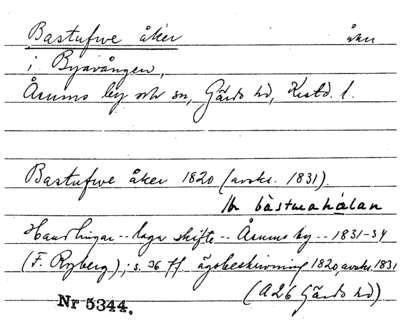 Bastufwe åker åker
i Byavången,
Årums by och sn, Gärds hd, Krstd. l.
Bastufwe åker 1820 (avskr. 1831).
bástuahálan
Handlingar -- laga skifte -- Årums by -- 1831-34
(F. Ryberg); s. 36 ff. ägobeskrivning 1820, avskr. 1831
(A26 Gärds hd)
Nr 5344.